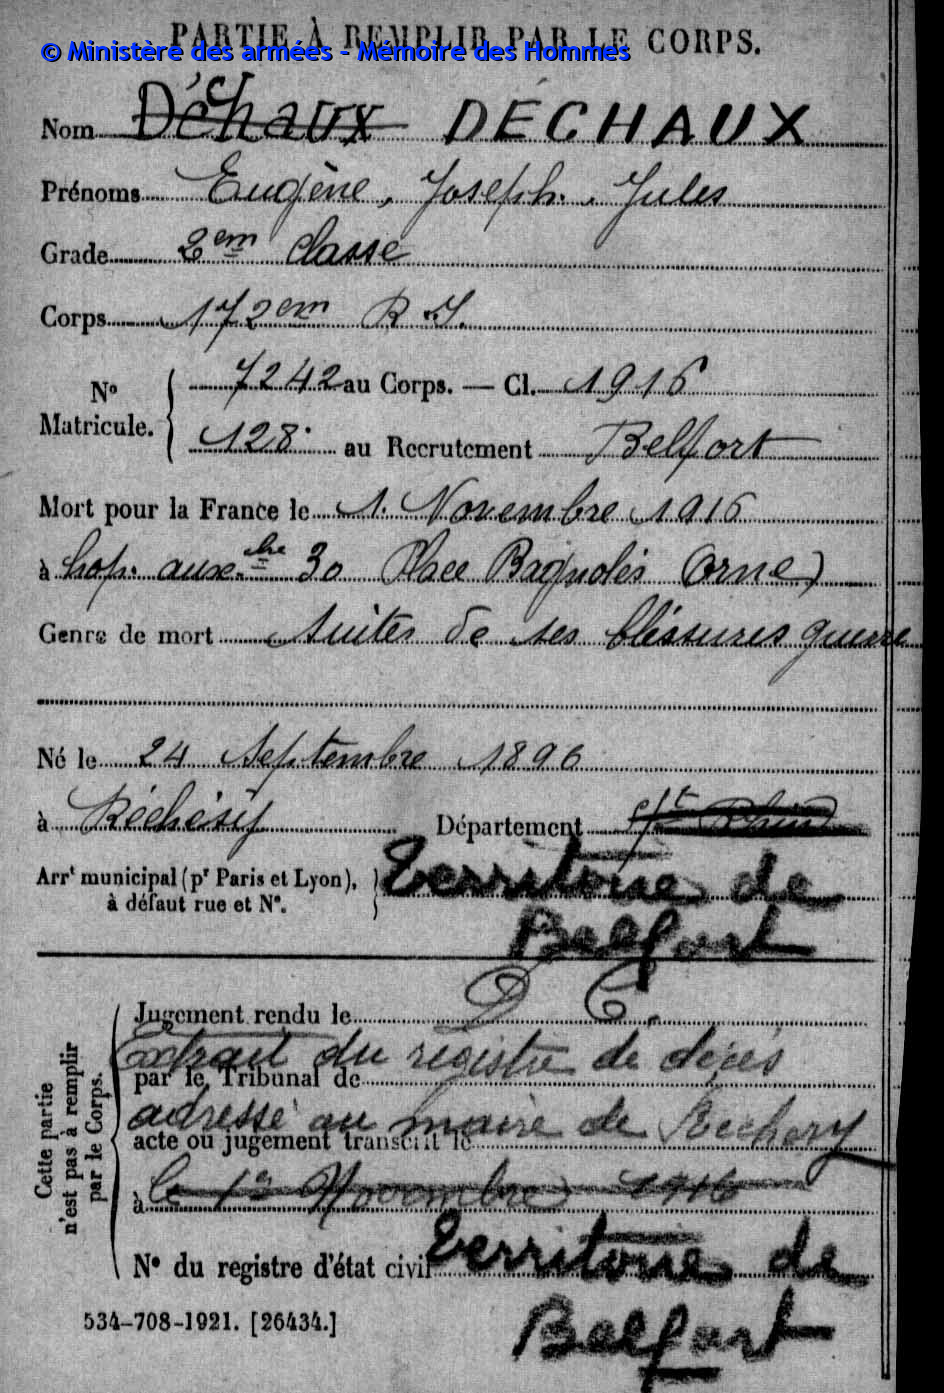 PARTIE À REMPLIR PAR LE CORPS.
© Ministère des armées - Mémoire des Hommes
Nom Déchaux DÉCHAUX
Prénoms Eugène, Joseph, Jules
Grade 2em classe
Corps 172em R.I.
No Matricule. 7242 au Corps. — Cl. 1916
128 au Recrutement Belfort
Mort pour la France le 1. Novembre 1916
à hop. auxre 30 Place Bagnolés (Orne)
Genre de mort suites de ses bléssures guerre
Né le 24 Septembre 1896
à Réchésy Département Ht Rhin
Arrt municipal (pr Paris et Lyon), à défaut rue et No. Territoire de
Belfort
Cette partie n'est pas à remplir par le Corps.
Jugement rendu le D C.
Extrait du registre de décès
par le Tribunal de
adressé au maire de Rechesy
acte ou jugement transcrit le
à le 1er Novembre 1916
No du registre d'état civil Territoire de
Belfort
534-708-1921. [26434.]